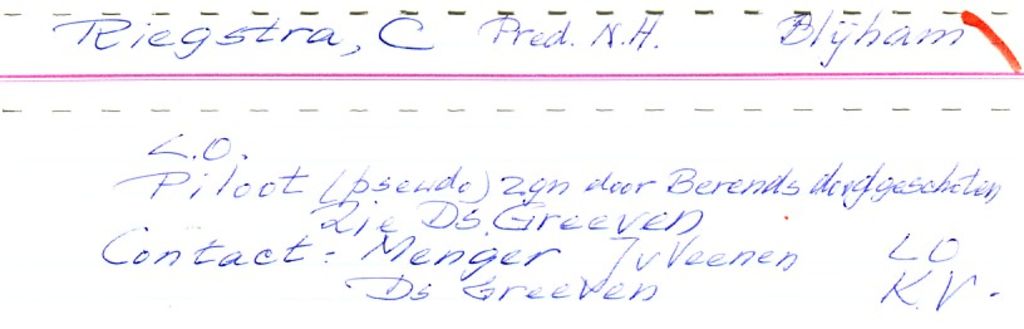 Riegstra, C Pred. N.H. Blijham
L.O.
Piloot (pseudo) zijn door Berends doodgeschoten
Zie Ds. Greeven
Contact: Menger JvVeenen LO
Ds Greeven K.V.